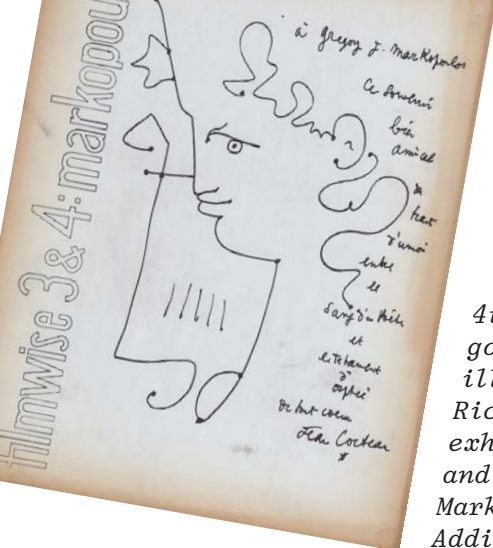 filmwise 3 & 4: markopou
à Gregory J. Markopoulos
Ce Souvenir
bien
amical
trait
d'union
entre
le
Sang d'un Poète
et
le testament
d'
Orphée
de tout coeur
Jean Cocteau
*
4
go
ill
Ric
exh
and
Mark
Addi